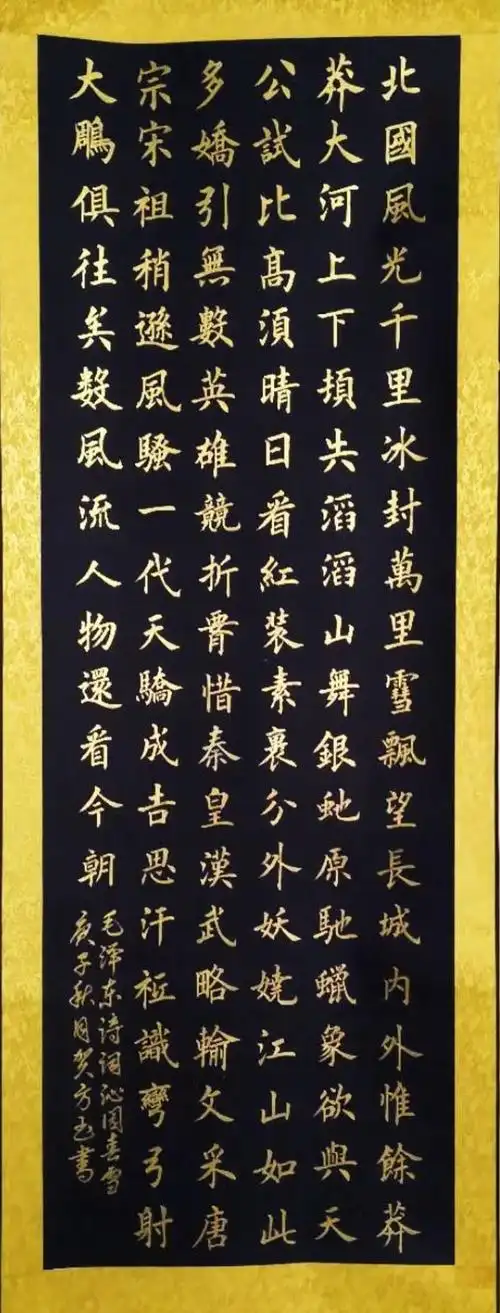 北國風光千里冰封萬里雪飄望長城內外惟餘莽
莽大河上下頓失滔滔山舞銀虵原馳蠟象欲與天
公試比高須晴日看紅装素裹分外妖嬈江山如此
多嬌引無數英雄競折霄惜秦皇漢武略輸文采唐
宗宋祖稍遜風騷一代天驕成吉思汗祗識彎弓射
大鵰俱往矣数風流人物還看今朝
毛泽东诗词沁园春雪
庚子秋月贺方玉書